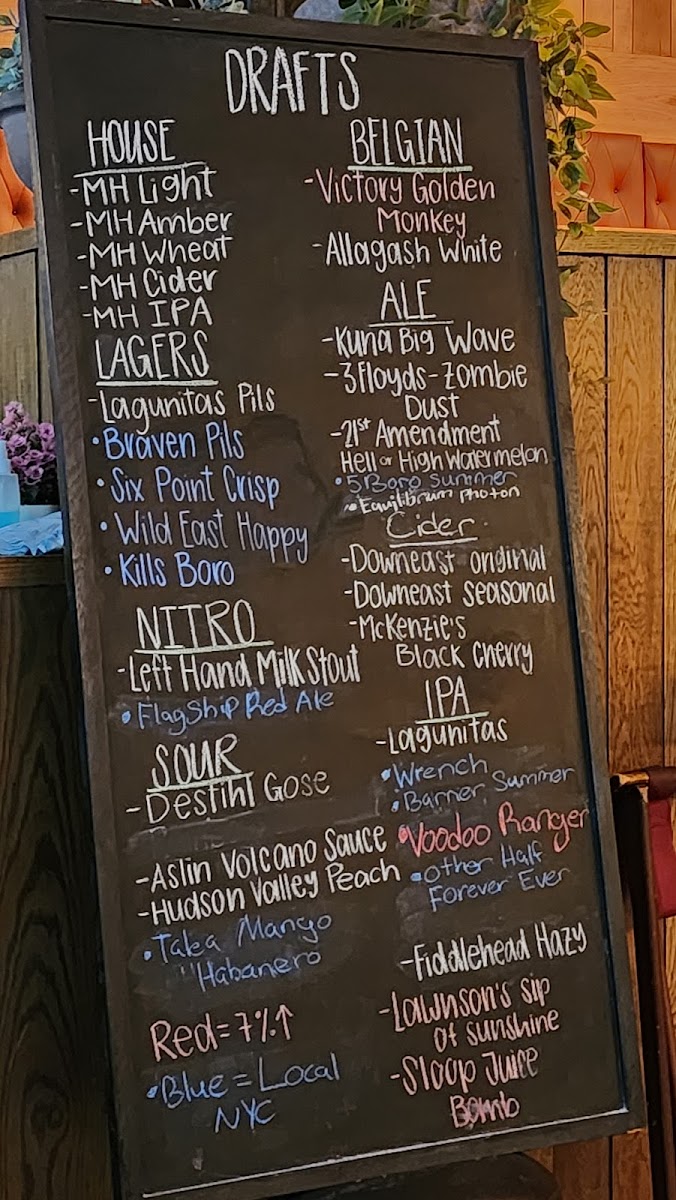 DRAFTS
HOUSE
-MH Light
-MH Amber
-MH Wheat
-MH Cider
-MH IPA
LAGERS
-Lagunitas Pils
•Braven Pils
•Six Point Crisp
•Wild East Happy
•Kills Boro
NITRO
-Left Hand Milk Stout
•Flagship Red Ale
SOUR
-Destihl Gose
-Aslin Volcano Sauce
-Hudson Valley Peach
•Talea Mango
"Habanero
Red=7%↑
•Blue=Local
NYC
BELGIAN
-Victory Golden
Monkey
-Allagash White
ALE
-Kuna Big Wave
-3 Floyds-Zombie
Dust
-21st Amendment
Hell or High Watermelon
•5 Boro Summer
•Equilibrum Photon
Cider
-Downeast original
-Downeast seasonal
-McKenzie's
Black Cherry
IPA
-Lagunitas
•Wrench
•Barrier Summer
•Voodoo Ranger
•Other Half
Forever Ever
-Fiddlehead Hazy
-Lawnson's sip
of sunshine
-Sloop Juice
Bomb